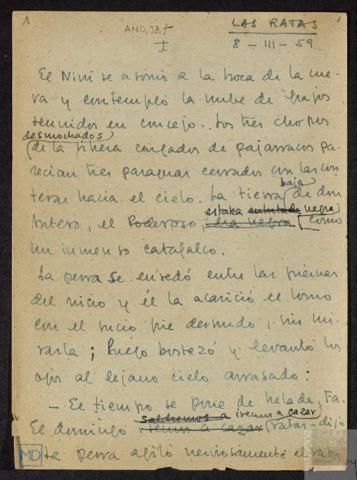 1 AMD, 38,5 LAS RATAS 1
I 8 - III - 59
El Nini se asomó a la boca de la cue-
va y contempló la nube de grajos
reunidos en concejo. Los tres chopos
desmochados
de la ribera cargados de pajarracos pa-
recían tres paraguas cerrados con las con-
teras hacia el cielo. La tierra baja de don
Antero, el Poderoso estaba negra como
un inmenso catafalco.
La perra se enredó entre las piernas
del niño y él la acarició el lomo
con el sucio pie desnudo, sin mi-
rarla; luego bostezó y levantó los
ojos al lejano cielo arrasado:
- El tiempo se pone de helada, Fa.
El domingo iremos a cazar ratas - dijo
La perra agitó nerviosamente el rabo
MD